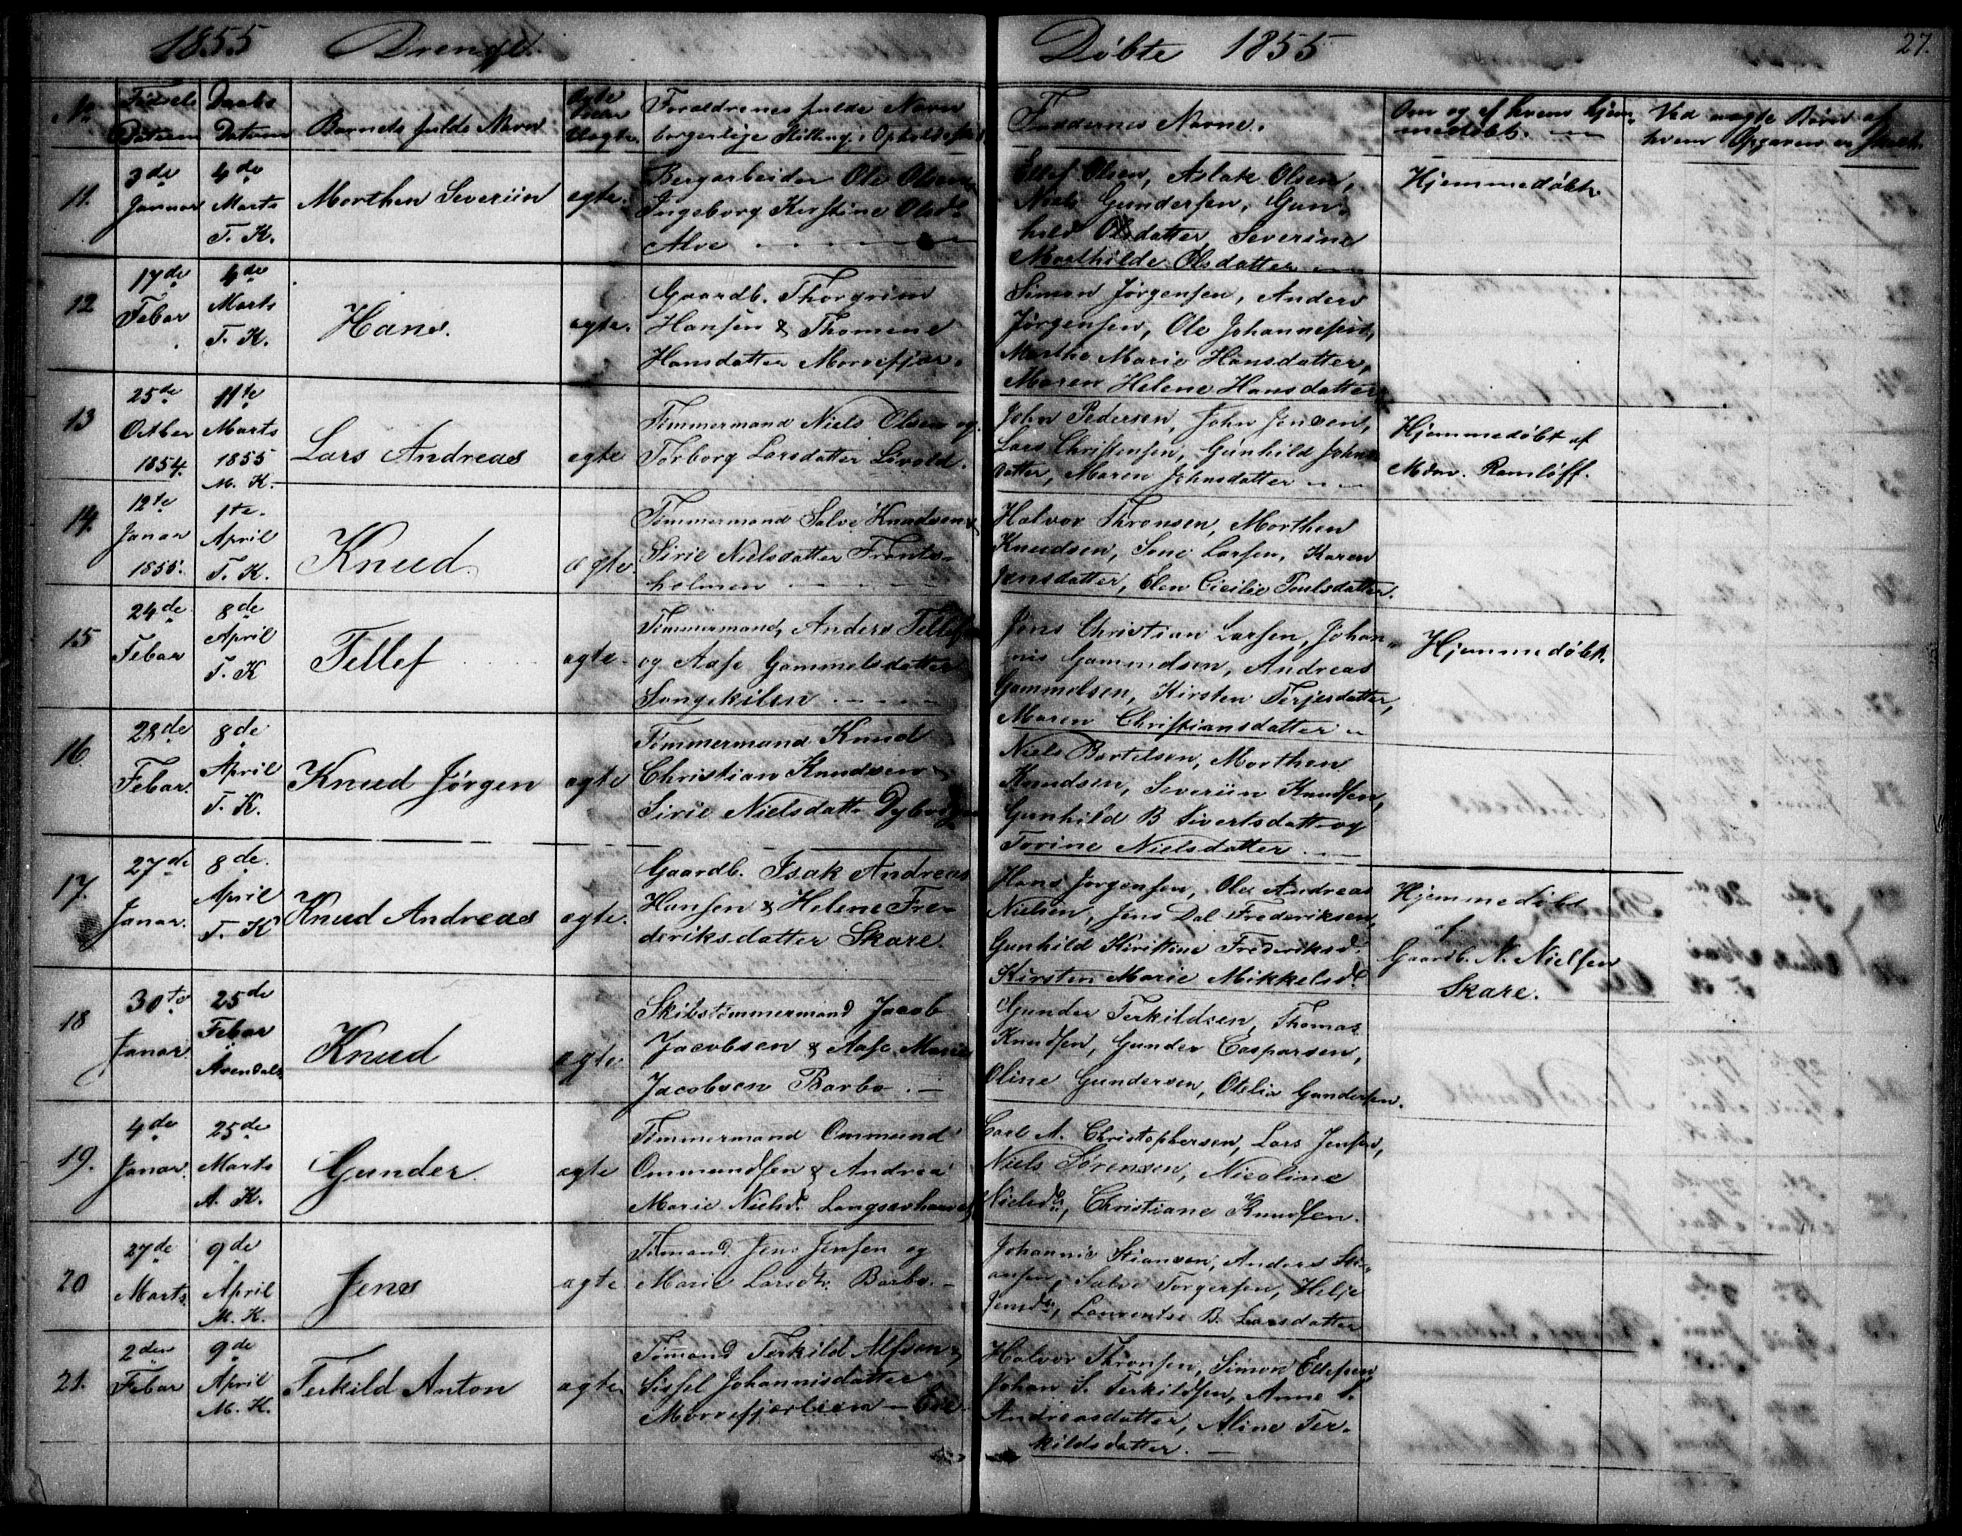 1855 Drenge. Døbte 1855 27.
No Fødsels Datum
Daabs Datum
Barnets fulde Navn
ægte eller uægte.
Forældrenes fulde Navn
borgerlige Stilling, Opholdssted
Faddernes Navne.
Om og af hvem hjem-
medøbt.
Ved uægte Børn af
hvem Opgaven er skeet.
11.
3de
Januar
4de
Marts
T. K.
Morthen Severiin
ægte.
Bergarbeider Ole Olsen
Ingeborg Kirstine Olsd.
Alve
Ellef Olsen, Aslak Olsen,
Niels Gundersen, Gun-
hild Olsdatter, Severine
Marthilde Olsdatter
Hjemmedøbt
12
17de
Febar
4de
Marts
T. K.
Hans.
ægte.
Gaardb. Thorgrim
Hansen & Thomene
Hansdatter Morvefjær.
Simon Jørgensen, Anders
Jørgensen, Ole Johannesen,
Marthe Marie Hansdatter,
Maren Helene Hansdatter
13
25de
Octber
1854.
11te
Marts
1855
M. K.
Lars Andreas
ægte
Tømmermand Niels Olsen og
Torborg Larsdatter Livold.
John Pedersen, John Jensen,
Lars Christensen, Gunhild Johns-
datter, Maren Johnsdatter
Hjemmedøbt af
Mdm. Ramløff.
14.
12te
Janar
1855.
1te.
April
T. K.
Knud.
ægte.
Tømmermand Salve Knudsen &
Sirie Nielsdatter Frants-
holmen
Halvor Thronsen, Morthen
Knudsen, Sone Larsen, Karen
Jensdatter, Elen Cicilie Poulsdatter.
15
24de
Febar
8de
April
T. K
Tellef
ægte.
Tømmermand, Anders Tellefs.
og Aase Gammelsdatter
Songekilen
Jens Christian Larsen, Johan-
nis Gammelsen, Andreas
Gammelsen, Kirsten Terjesdatter,
Maren Christiansdatter
Hjemmedøbt.
16.
28de
Febar.
8de
April
T. K.
Knud Jørgen
ægte
Tømmermand Knud
Christian Knudsen &
Sirie Nielsdattr Dybvig
Niels Bertelsen, Morthen
Knudsen, Severiin Knudsen,
Gunhild B Sivertsdatt og
Torine Nielsdatter.
17.
27de
Janar.
8de.
April
T. K
Knud Andreas
ægte.
Gaardb. Isak Andreas
Hansen & Helene Fre-
deriksdatter Skare.
Hans Jørgensen, Ole Andreas
Nielsen, Jens Dal Frederiksen,
Gunhild Kirstine Frederiksd.
Kirsten Marie Mikkelsd.
Hjemmedøbt
af
Gaardb. N. Nielsen
Skare.
18
30te
Janar
25de
Febar
Arendal
Knud
ægte
Skibstømmermand Jacob
Jacobsen & Aase Marie
Jacobsen Barbo.
Gunder Terkildsen, Thomas
Knudsen, Gunder Casparsen,
Oline Gundersen, Otelia Gundersen.
19.
4de
Janar.
25de
Marts
A. K.
Gunder.
ægte
Tømmermand Ommund
Ommundsen & Andrea
Marie Nielsd. Langsævhavn
Carl A. Christophersen, Lars Jensen,
Niels Sørensen, Nicoline
Nielsd., Christiane Knudsen.
20
27de
Marts.
9de
April
M. K.
Jens
ægte
Tømand. Jens Jensen og
Marie Larsdtr Barbo.
Johannis Stiansen, Anders Sti-
ansen, Salve Torgersen, Helje
Jensd., Laurentse B. Larsdatter
21.
2den
Febar
9de
April
M. K.
Terkild Anton
ægte.
Tømand Terkild Alfsen &
Sissel Johannisdatter
Morvefjærheien
Halvor Thronsen, Simon Ellefsen,
Johan S. Terkildsen, Anne S.
Andreasdatter, Aline Ter-
kildsdatter.